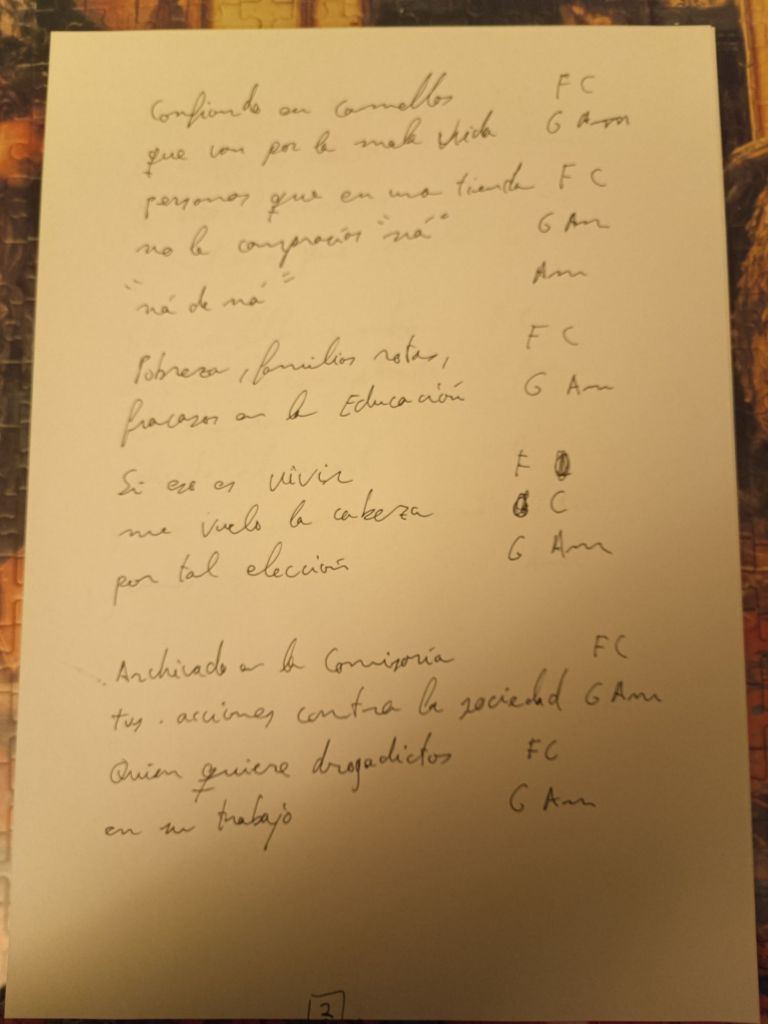 Confiando en camellos F C
que van por la mala vida G Am
personas que en una tienda F C
no le comprarías "ná" G Am
"ná de ná" Am
Pobreza, familias rotas, F C
fracasos en la Educación G Am
Si eso es vivir F
me vuelo la cabeza C
por tal elección G Am
Archivado en la Comisaría F C
tus acciones contra la sociedad G Am
Quien quiere drogadictos F C
en su trabajo G Am
2